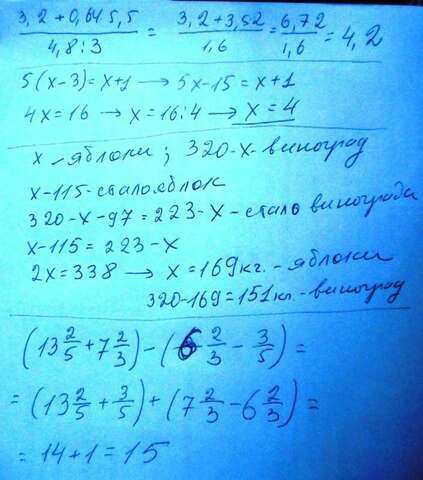 3,2+0,64·5,5 / 4,8:3 = 3,2+3,52 / 1,6 = 6,72 / 1,6 = 4,2
5(x-3)=x+1 → 5x-15=x+1
4x=16 → x=16:4 → x=4
x-яблоки; 320-x-виноград
x-115-стало яблок
320-x-97=223-x-стало винограда
x-115=223-x
2x=338 → x=169кг.-яблоки
320-169=151кг.-виноград
(13 2/5 + 7 2/3) - (6 2/3 - 3/5) =
= (13 2/5 + 3/5) + (7 2/3 - 6 2/3) =
= 14+1=15